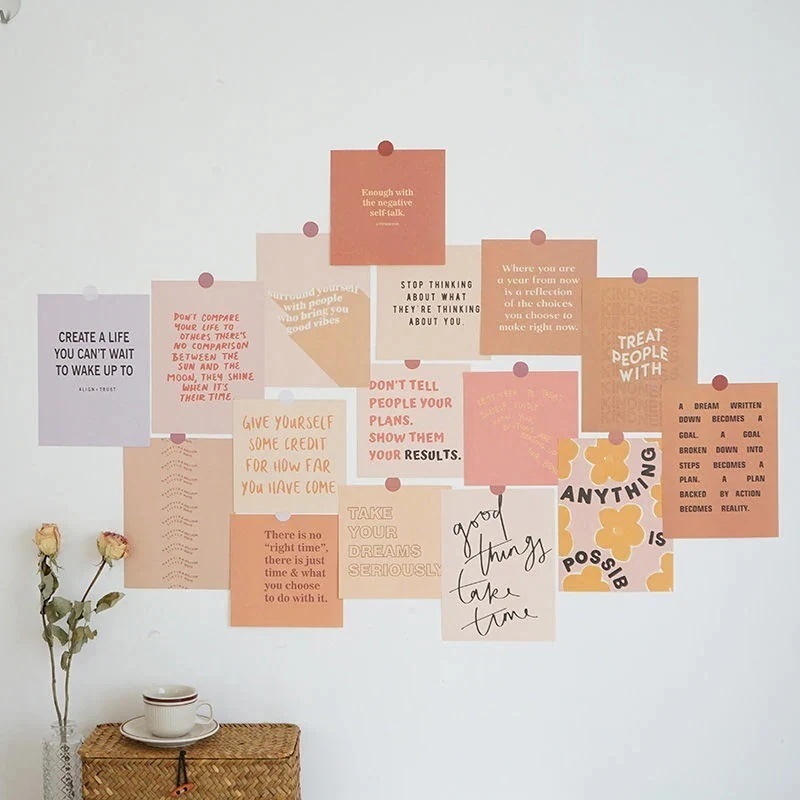 Enough with
the negative
self-talk.
surround yourself
with people
who bring you
good vibes
STOP THINKING
ABOUT WHAT
THEY'RE THINKING
ABOUT YOU.
Where you are
a year from now
is a reflection
of the choices
you choose to
make right now.
TREAT
PEOPLE
WITH
CREATE A LIFE
YOU CAN'T WAIT
TO WAKE UP TO
ALIGN + TRUST
DON'T COMPARE
YOUR LIFE TO
OTHERS THERE'S
NO COMPARISON
BETWEEN THE
SUN AND THE
MOON, THEY SHINE
WHEN IT'S
THEIR TIME.
DON'T TELL
PEOPLE YOUR
PLANS.
SHOW THEM
YOUR RESULTS.
A DREAM WRITTEN
DOWN BECOMES A
GOAL. A GOAL
BROKEN DOWN INTO
STEPS BECOMES A
PLAN. A PLAN
BACKED BY ACTION
BECOMES REALITY.
GIVE YOURSELF
SOME CREDIT
FOR HOW FAR
YOU HAVE COME
ANYTHING
IS
POSSIB
There is no
"right time",
there is just
time & what
you choose
to do with it.
TAKE
YOUR
DREAMS
SERIOUSLY
good
things
take
time